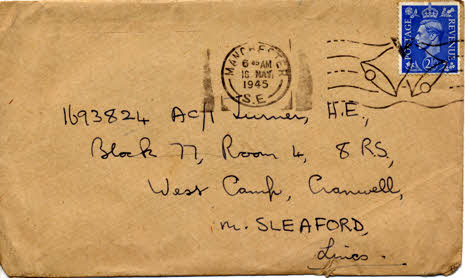 MANCHESTER
6 45 AM
16 MAY
1945
S.E.
POSTAGE
REVENUE
2½
1693824 AC/1 Turner, H.E,
Block 77, Room 4, 8 R.S,
West Camp, Cranwell,
nr. SLEAFORD,
Lincs.